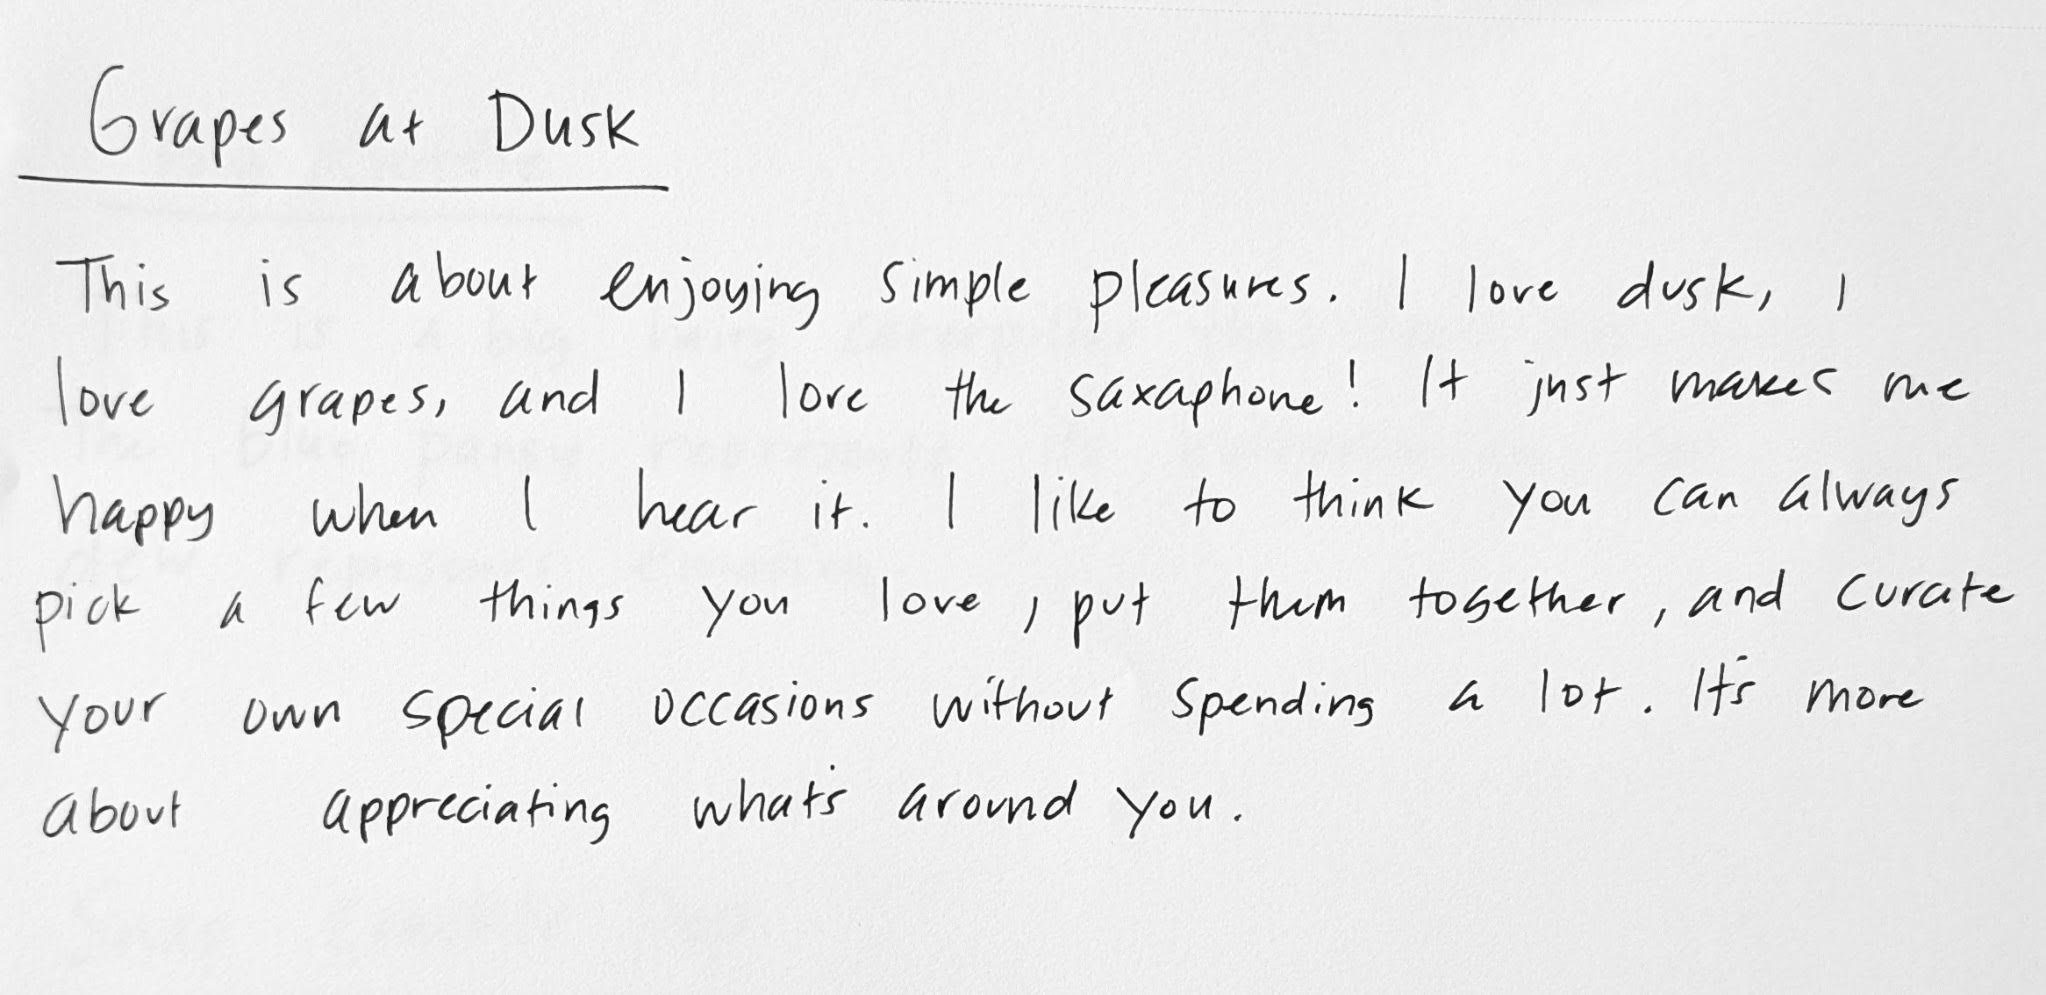 Grapes at Dusk
This is about enjoying simple pleasures. I love dusk, I
love grapes, and I love the saxaphone! It just makes me
happy when I hear it. I like to think you can always
pick a few things you love, put them together, and curate
your own special occasions without spending a lot. It's more
about appreciating what's around you.